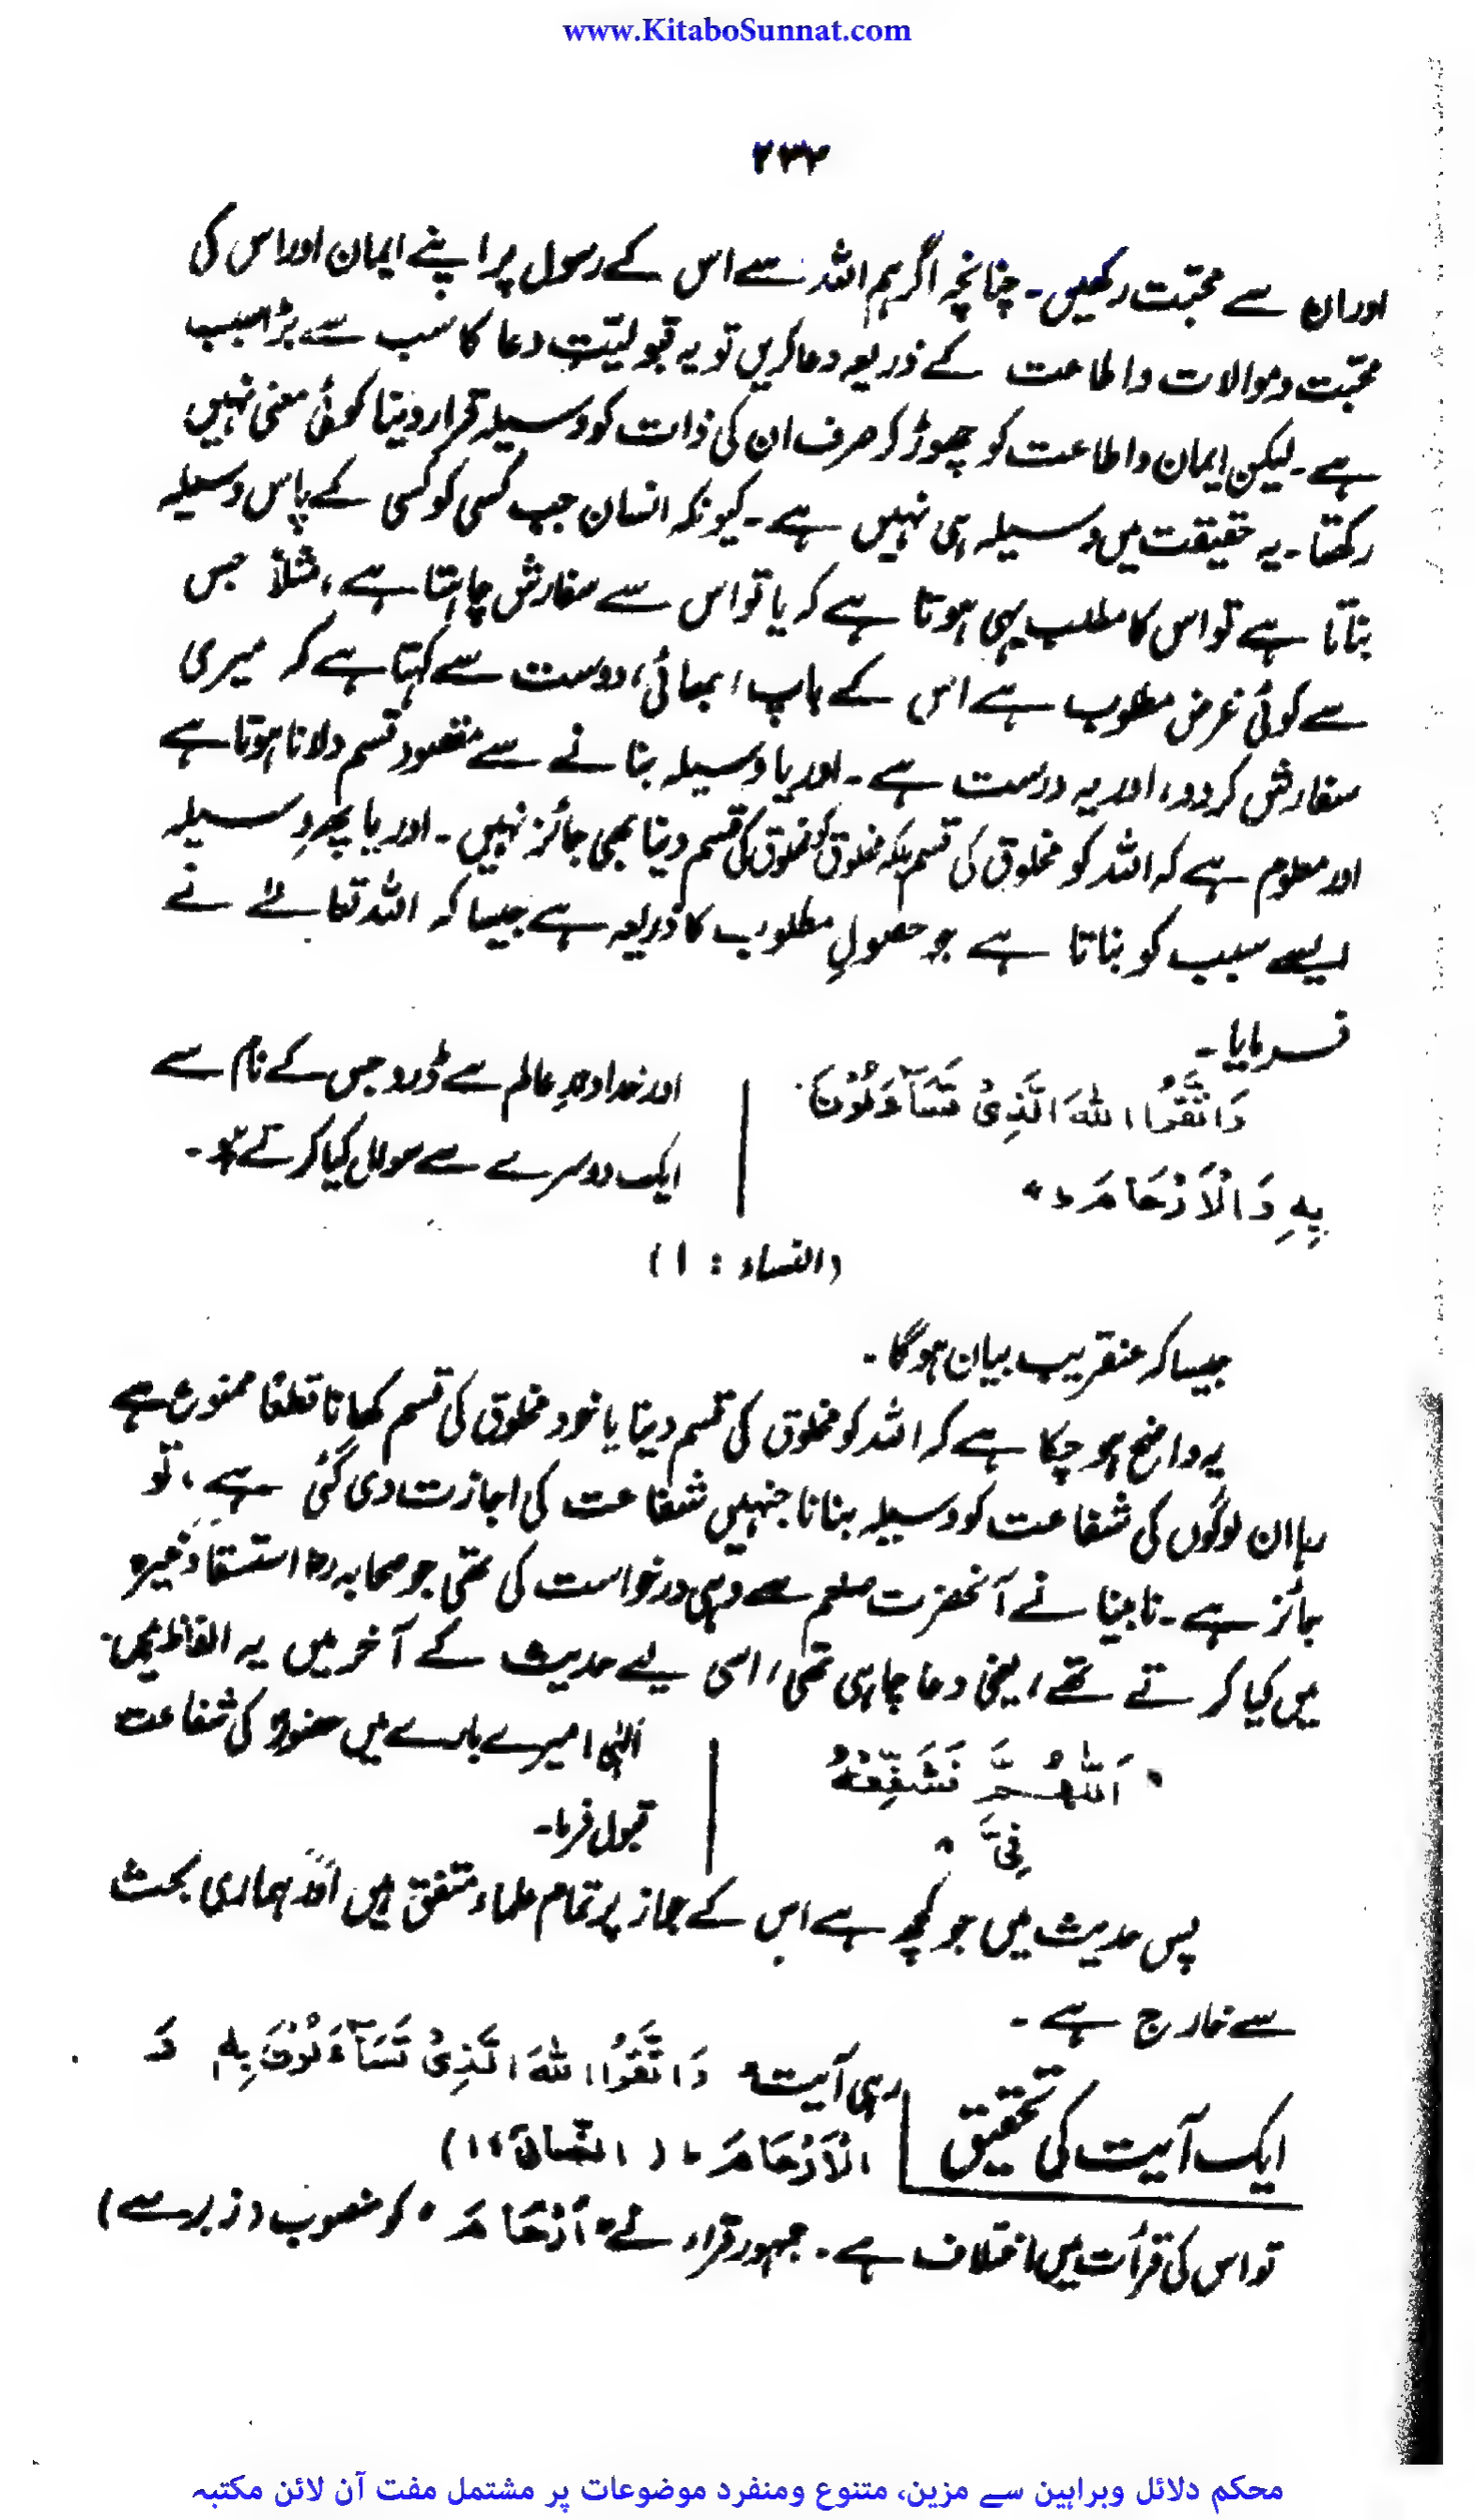 www.KitaboSunnat.com
۲۳۲
اور ان سے محبت رکھیں۔ چنانچہ اگر ہم اللہ سے اس کے رسول پر اپنے ایمان اور اس کی
محبت و موالات و اطاعت کے ذریعہ دعا کریں تو یہ قبولیت دعا کا سب سے بڑا سبب
ہے۔ لیکن ایمان و اطاعت کو چھوڑ کر صرف ان کی ذات کو وسیلہ قرار دینا کوئی معنی نہیں
رکھتا۔ یہ حقیقت میں وسیلہ ہی نہیں ہے۔ کیونکہ انسان جب کسی کو کسی کے پاس وسیلہ
بناتا ہے تو اس کا مطلب یہی ہوتا ہے کہ یا تو اس سے سفارش چاہتا ہے، مثلاً جس
سے کوئی غرض مطلوب ہے اس کے باپ، بھائی، دوست سے کہتا ہے کہ میری
سفارش کر دو، اور یہ درست ہے۔ اور یا وسیلہ بنانے سے مقصود قسم دلانا ہوتا ہے
اور معلوم ہے کہ اللہ کو مخلوق کی قسم بلکہ مخلوق کو مخلوق کی قسم دینا بھی جائز نہیں۔ اور یا پھر وسیلہ
ایسے سبب کو بناتا ہے جو حصولِ مطلوب کا ذریعہ ہے جیسا کہ اللہ تعالےٰ نے
فرمایا۔
وَاتَّقُوا اللهَ الَّذِیْ تَسَآءَلُوْنَ
بِهِ وَالْاَرْحَامَ۔"
اور خداوندِ عالم سے ڈرو جس کے نام سے
ایک دوسرے سے سوال کیا کرتے ہو۔
(النساء : ۱)
جیسا کہ عنقریب بیان ہوگا۔
یہ واضح ہو چکا ہے کہ اللہ کو مخلوق کی قسم دینا یا خود مخلوق کی قسم کھانا قطعاً ممنوع ہے
رہا ان لوگوں کی شفاعت کو وسیلہ بنانا جنہیں شفاعت کی اجازت دی گئی ہے، تو
جائز ہے۔ نابینا نے آنحضرت صلعم سے وہی درخواست کی تھی جو صحابہ رض استسقا وغیرہ
میں کیا کرتے تھے، یعنی دعا چاہی تھی، اسی لیے حدیث کے آخر میں یہ الفاظ ہیں۔
" اَللّٰهُمَّ فَشَفِّعْهُ
فِیَّ "
الٰہی! میرے بارے میں حضورؐ کی شفاعت
قبول فرما۔
پس حدیث میں جو کچھ ہے اس کے جواز پر تمام علماء متفق ہیں اور ہماری بحث
سے خارج ہے۔
ایک آیت کی تحقیق
رہی آیت " وَاتَّقُوا اللهَ الَّذِیْ تَسَآءَلُوْنَ بِهٖ وَ
الْاَرْحَامَ۔ (النساء ،۱)
تو اس کی قرأت میں اختلاف ہے۔ جمہور قراء نے "اَرْحَامَ" کو منصوب (زبر سے)
محکم دلائل وبراہین سے مزین، متنوع ومنفرد موضوعات پر مشتمل مفت آن لائن مکتبہ